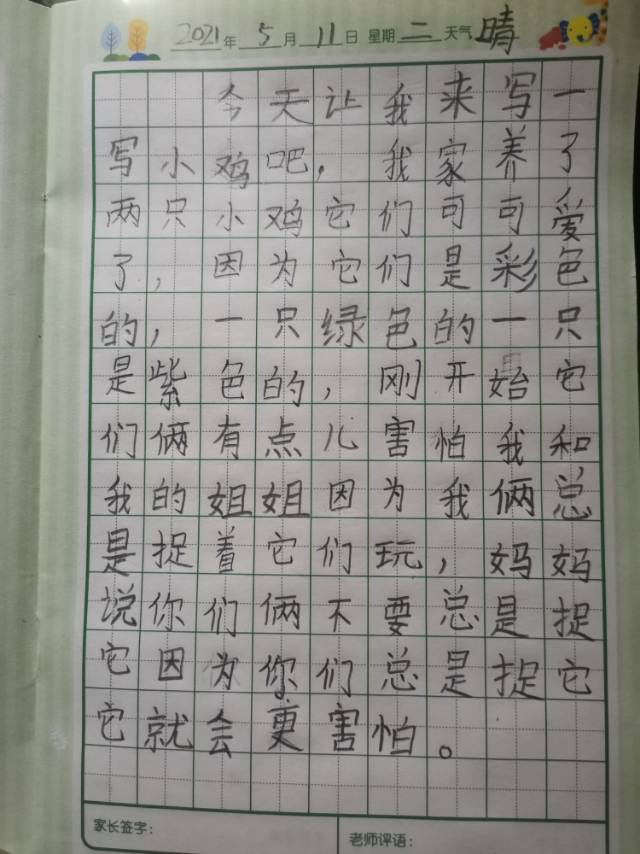 2021年5月11日 星期二 天气晴
今天让我来写一
写小鸡吧，我家养了
两只小鸡它们可可爱
了，因为它们是彩色
的，一只绿色的一只
是紫色的，刚开始它
们俩有点儿害怕我和
我的姐姐因为我俩总
是捉着它们玩，妈妈
说你们俩不要总是捉
它因为你们总是捉它
它就会更害怕。
家长签字：
老师评语：